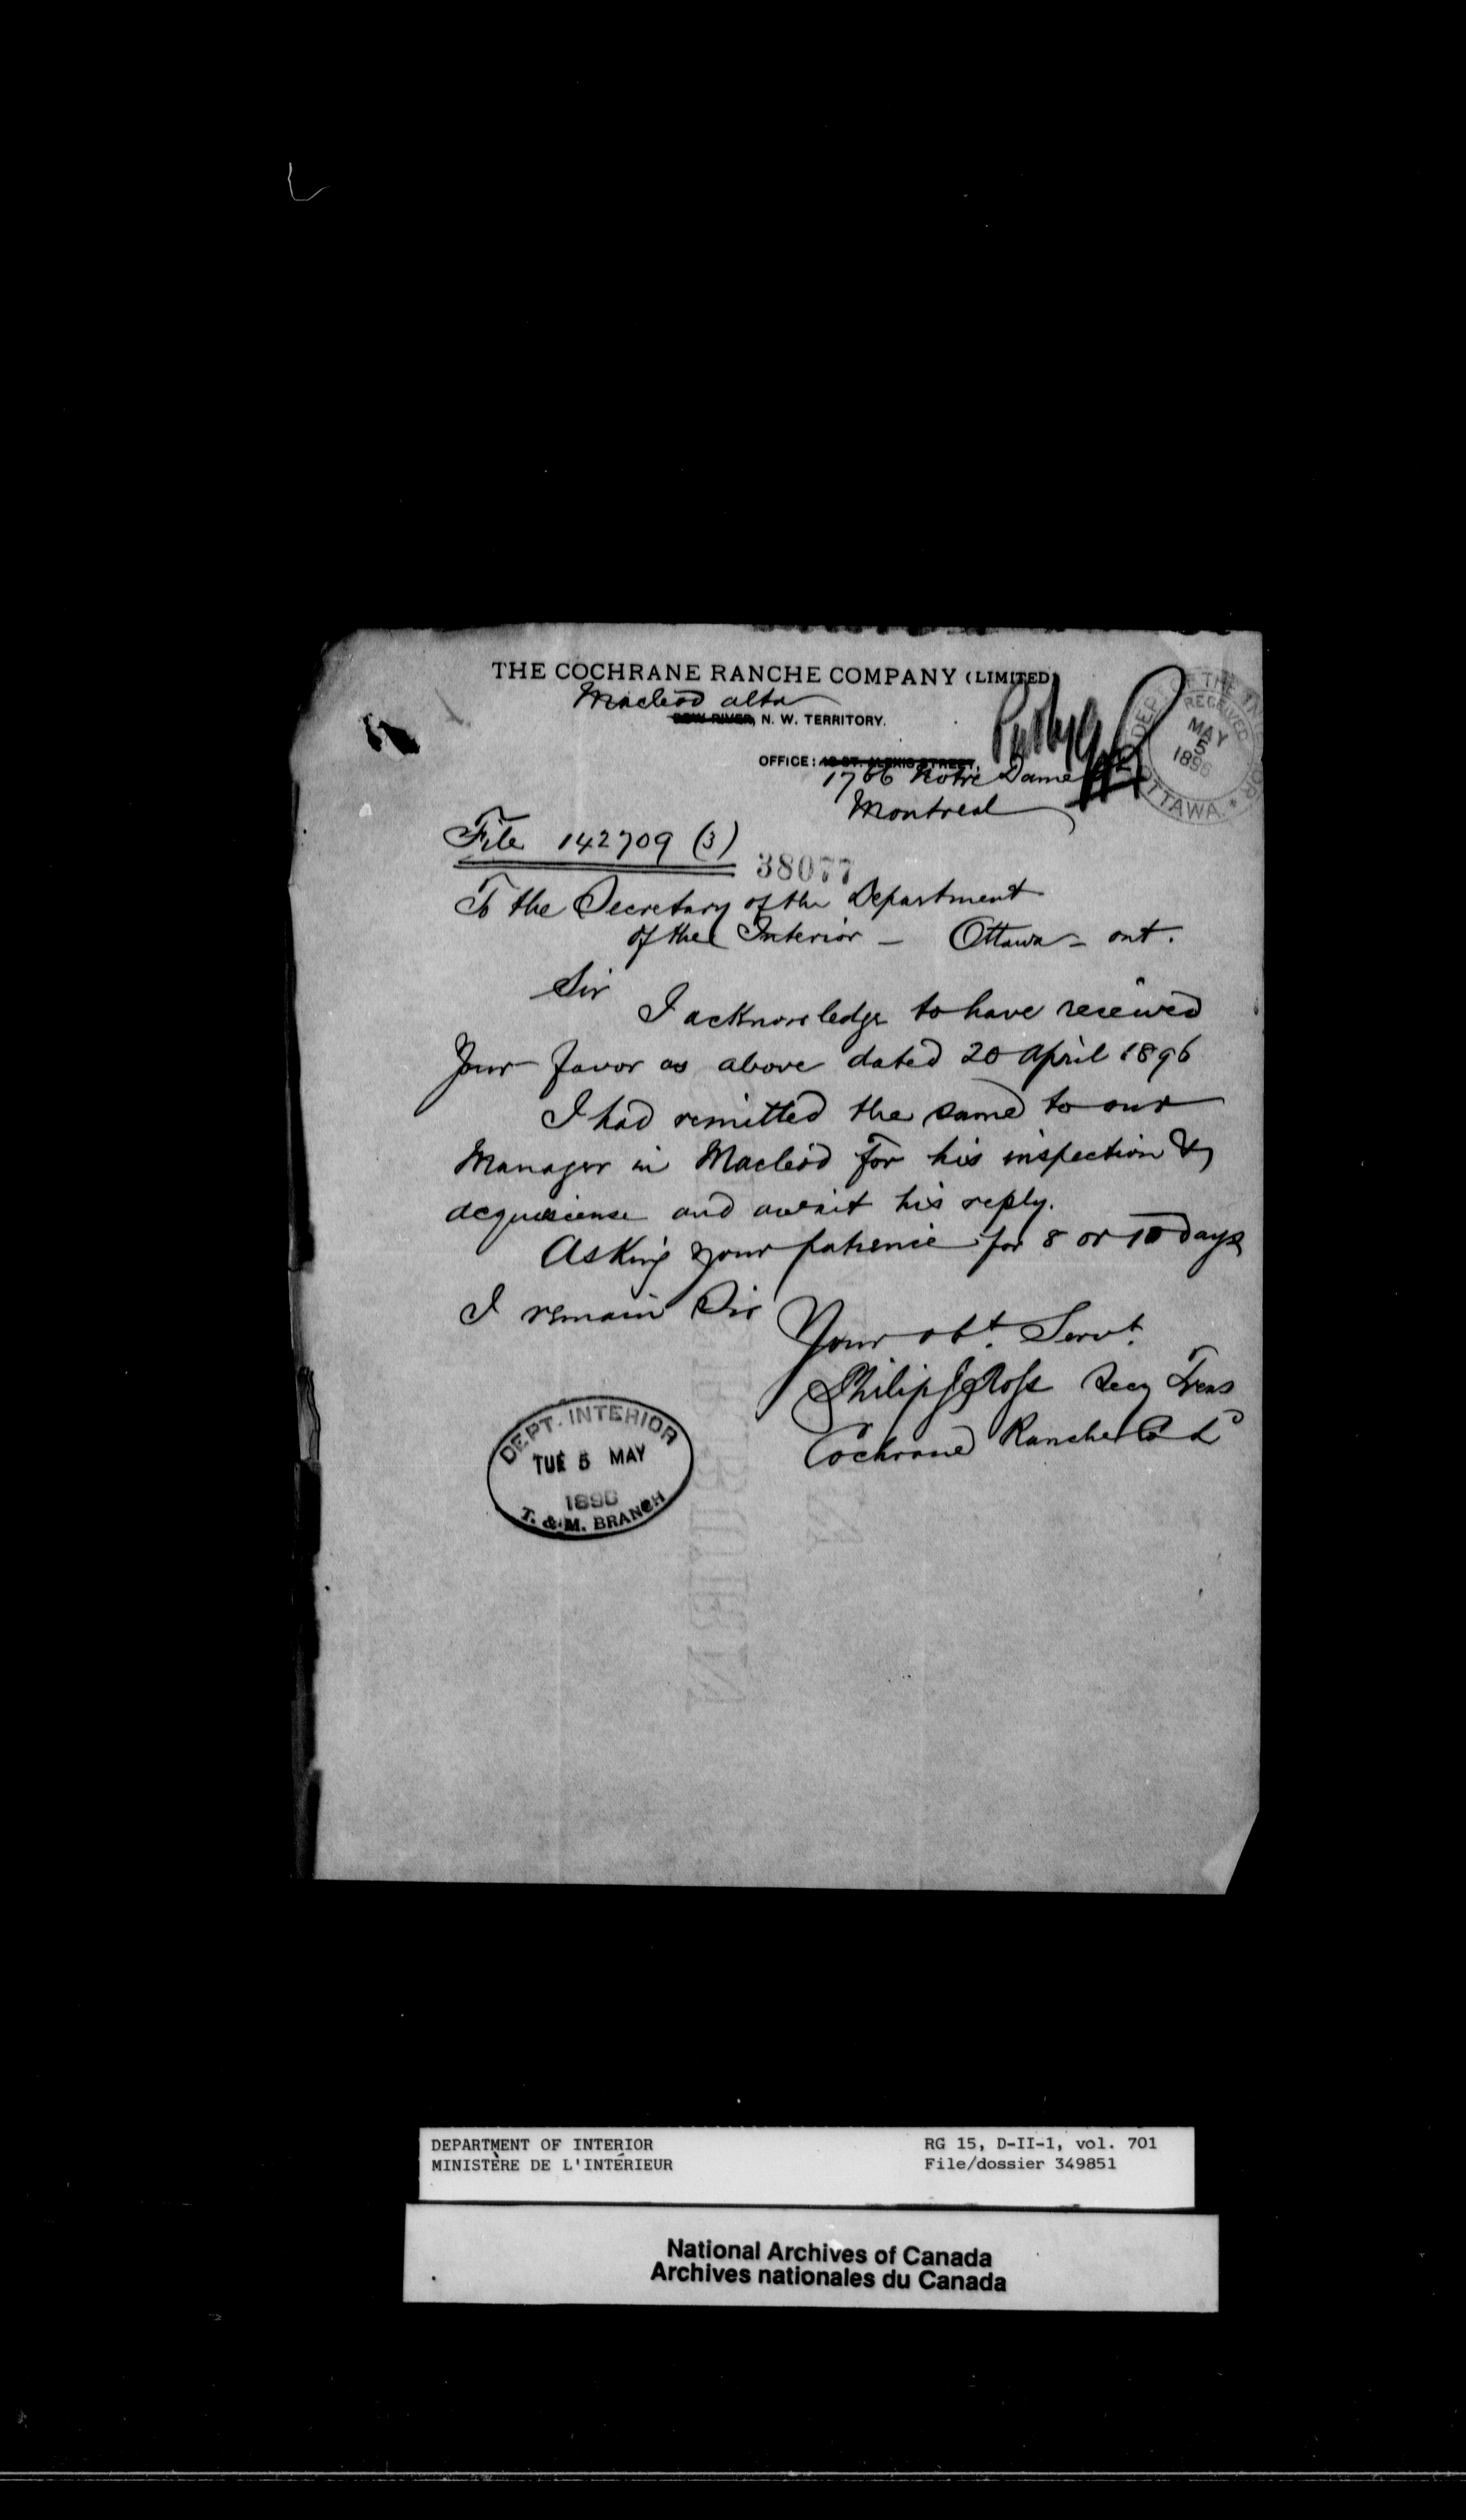 THE COCHRANE RANCHE COMPANY (LIMITED)
Macleod Alta
BOW RIVER, N. W. TERRITORY.
OFFICE: 19 ST. ALEXIS STREET,
1766 Notre Dame
Montreal
DEPT. OF THE INTERIOR
RECEIVED
MAY
5
1896
OTTAWA
File 142709 (3)
38077
To the Secretary of the Department
of the Interior – Ottawa – Ont.
Sir
I acknowledge to have received
Your favor as above dated 20 April 1896
I had remitted the same to our
Manager in Macleod for his inspection &
acquiescense and await his reply.
Asking your patience for 8 or 10 days
I remain Sir
Your obt. Servt.
Philip S Ross Secy Treas
Cochrane Ranche Co Ld
DEPT. INTERIOR
TUE 5 MAY
1896
T. & M. BRANCH
DEPARTMENT OF INTERIOR
MINISTÈRE DE L'INTÉRIEUR
RG 15, D-II-1, vol. 701
File/dossier 349851
National Archives of Canada
Archives nationales du Canada